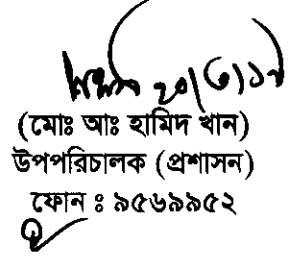 (মোঃ আঃ হামিদ খান)
উপপরিচালক (প্রশাসন)
ফোন ঃ ৯৫৬৯৯৫২